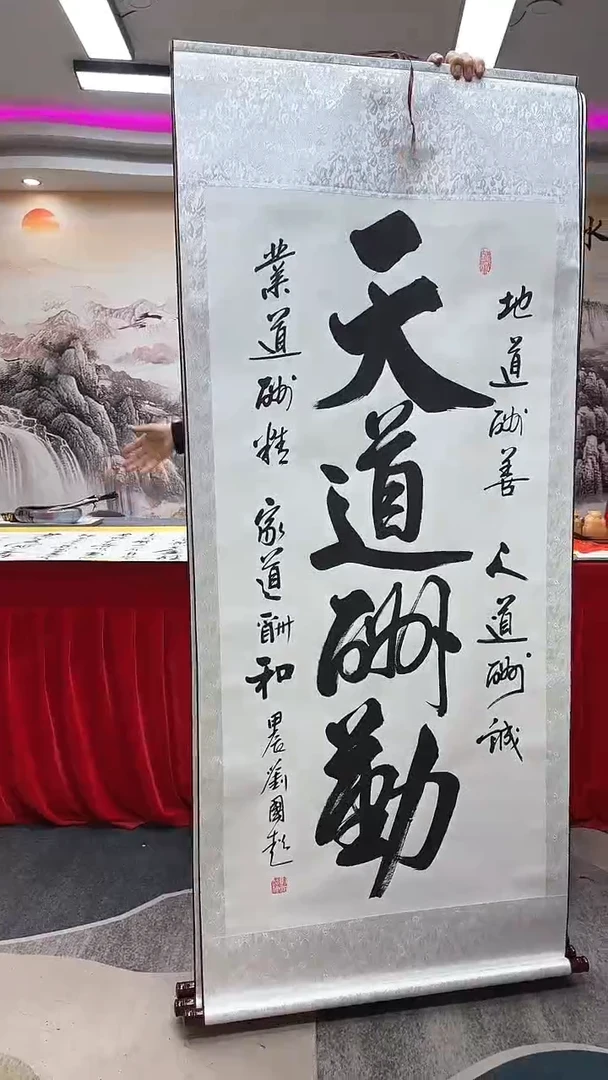 地道酬善 人道酬誠
天道酬勤
業道酬精 家道酬和 甲辰 劉國赴
水